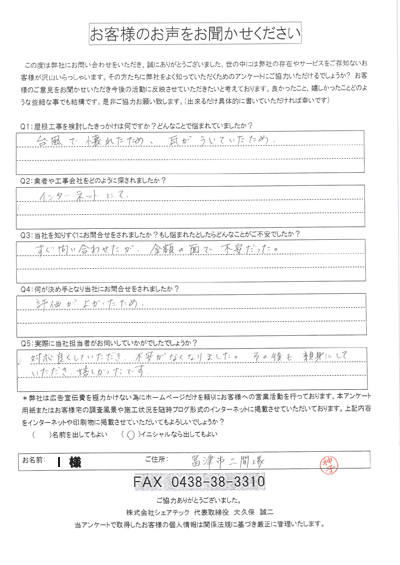 お客様のお声をお聞かせください
この度は弊社にお問い合わせをいただき、誠にありがとうございました。世の中には弊社の存在やサービスをご存知ないお
客様が沢山いらっしゃいます。その方たちに弊社をよく知っていただくためのアンケートにご協力いただけるでしょうか? お客
様のご意見をお聞かせいただき今後の活動に反映させていただきたいと考えております。良かったこと、嬉しかったことどのよ
うな些細な事でも結構です。是非ご協力お願い致します。(出来るだけ具体的に書いていただければ幸いです)
Q1:屋根工事を検討したきっかけは何ですか?どんなことで悩まれていましたか?
台風で壊れたため、瓦がういていたため。
Q2:業者や工事会社をどのように探されましたか?
インターネットにて、
Q3:当社を知りすぐにお問合せをされましたか?もし悩まれたとしたらどんなことがご不安でしたか?
すぐ問い合わせたが、金額の面で不安だった。
Q4:何が決め手となり当社にお問合せをされましたか?
評価がよかったため、
Q5:実際に当社担当者がお伺いしていかがでしたでしょうか?
対応良くしていただき、不安がなくなりました。その後も親身にして
いただき、嬉しかったです
*弊社は広告宣伝費を極力かけない為にホームページだけを頼りにお客様への営業活動を行っております。本アンケート
用紙またはお客様宅の調査風景や施工状況を随時ブログ形式のインターネットに掲載させていただいております。上記内容
をインターネットや印刷物に掲載させていただいてもよろしいでしょうか?
( )名前を出してもよい (○)イニシャルなら出してもよい
お名前: I 様 ご住所: 富津市二間塚
FAX 0438-38-3310
ご協力ありがとうございました。
株式会社シェアテック 代表取締役 大久保 誠二
当アンケートで取得したお客様の個人情報は関係法規に基づき厳正に管理いたします。